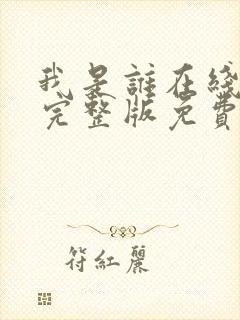 我是誰在綫
完整版免費
符紅麗